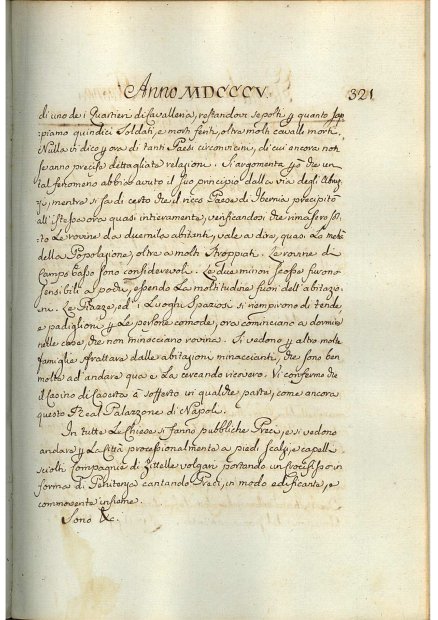 Anno MDCCCV. 321
di uno de i Quartieri di Cavalleria, restandovi sepolti p quanto sap
piamo quindici Soldati, e molti feriti, oltre molti cavalli morti.
Nulla vi dico p ora di tanti Paesi circonvicini, di cui ancora non
se anno precise dettagliate relazioni. Si argomenta che un
tal fenomeno abbia avuto il suo principio dalla via degli Abruz
zi, mentre si sa di certo che il ricco Paese di Isernia precipitò
all'istessa ora quasi intieramente, verificandosi che rimasero
sotto le rovine da duemila abitanti, vale a dire, quasi la metà
della Popolazione, oltre a molti stroppiati. Le rovine di
Campobasso sono considerevoli. Le due minori scosse furono
sensibili a pochi, essendo la moltitudine fuori dell'abitazio
ni. Le Piazze, ed i Luoghi spaziosi si riempirono di tende,
e padiglioni p le persone comode, ora cominciano a dormire
nelle case, che non minacciano rovina. Si vedono p altro molte
famiglie sfrattare dalle abitazioni minaccianti, che sono ben
molte ad andare qua e la cercando ricovero. Vi confermo che
il Casino di Caserta à sofferto in qualche parte, come ancora
questo Real Palazzone di Napoli.
In tutte le Chiese si fanno pubbliche Preci, e si vedono
andare p la Città processionalmente a piedi scalzi, e capelli
sciolti compagnie di Zittelle volgari portando un Crocifisso in
forma di Penitenza cantando Preci, in modo edificante, e
commovente insieme.
Sono &c.